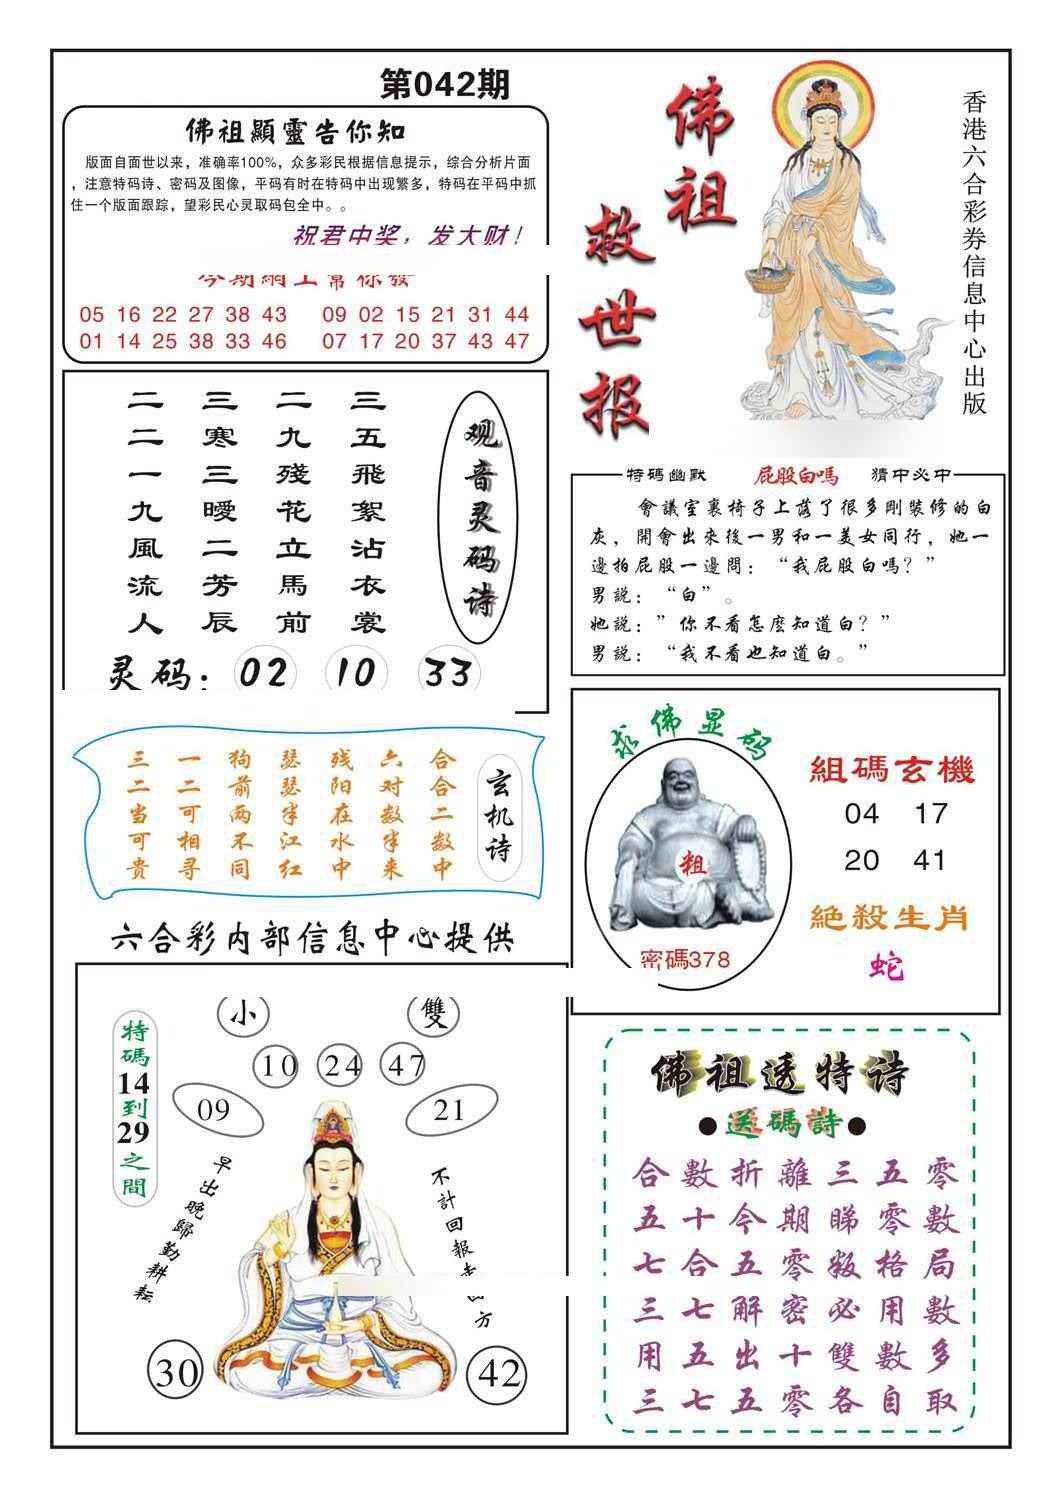 第042期
佛祖顯靈告你知
版面自面世以来，准确率100%，众多彩民根据信息提示，综合分析片面
，注意特码诗、密码及图像，平码有时在特码中出现繁多，特码在平码中抓
住一个版面跟踪，望彩民心灵取码包全中。。
祝君中奖，发大财！
今期網上幫你發
05 16 22 27 38 43 09 02 15 21 31 44
01 14 25 38 33 46 07 17 20 37 43 47
佛祖
救世报
香港六合彩券信息中心出版
观音灵码诗
三五飛絮沾衣裳
二九殘花立馬前
三寒三曖二芳辰
二二一九風流人
灵码：02 10 33
特碼幽默 屁股白嗎 猜中必中
會議室裏椅子上落了很多剛裝修的白
灰，開會出來後一男和一美女同行，她一
邊拍屁股一邊問：“我屁股白嗎？”
男説：“白”。
她説：”你不看怎麽知道白？”
男説：“我不看也知道白。”
玄机诗
合合二数中
六对数半来
残阳在水中
瑟瑟半江红
狗前两不同
一二可相寻
三二当可贵
求佛显码
粗
密碼378
組碼玄機
04 17
20 41
絕殺生肖
蛇
六合彩内部信息中心提供
小 雙
10 24 47
09 21
特碼14到29之間
早出晚歸勤耕耘
不計回報走四方
30 42
佛祖透特诗
●送碼詩●
合數折離三五零
五十今期睇零數
七合五零叛格局
三七解密必用數
用五出十雙數多
三七五零各自取